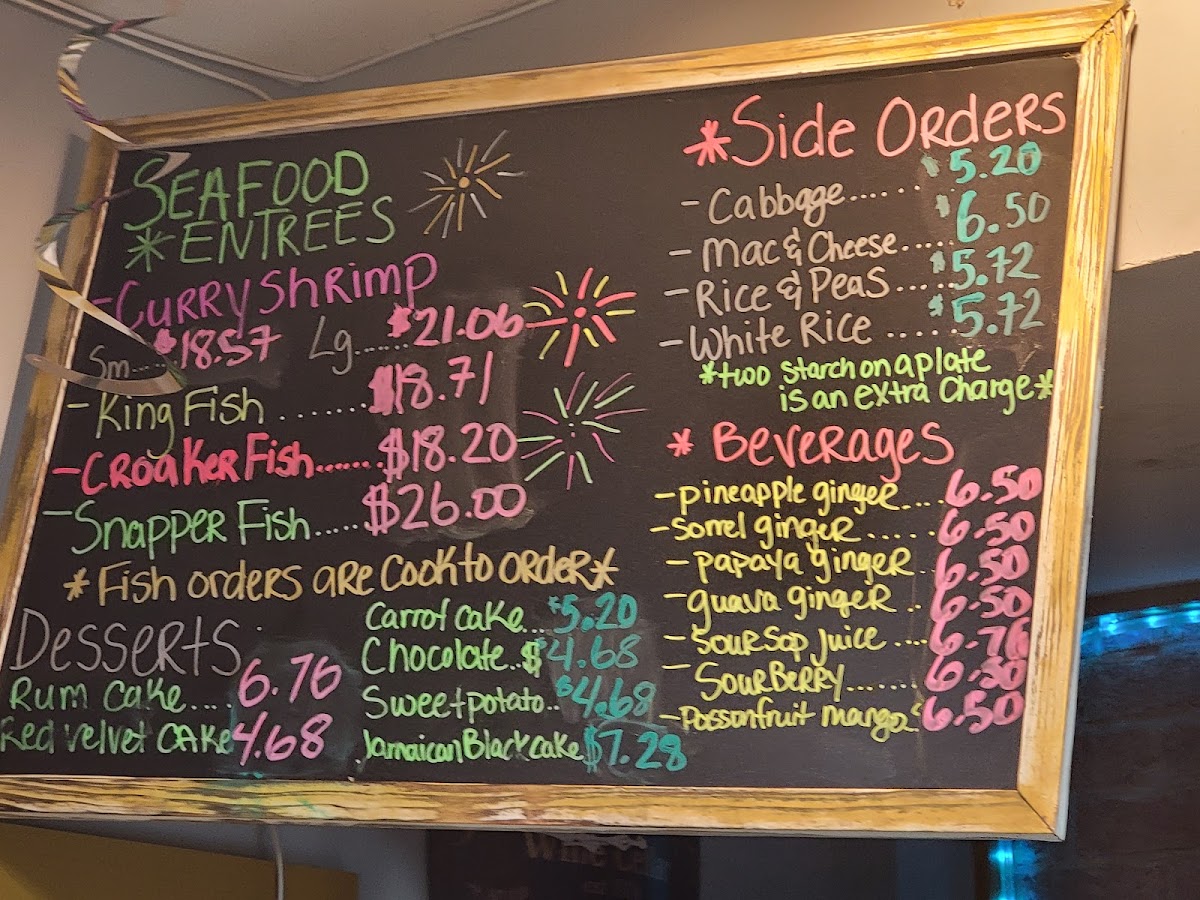 SEAFOOD
*ENTREES
- Curry Shrimp
Sm... $18.57 Lg...... $21.06
- King Fish ....... $18.71
- CROAKER Fish....... $18.20
- Snapper Fish..... $26.00
*Fish orders are Cook to order*
Desserts
Rum Cake.... 6.76
Red velvet CAKE 4.68
Carrot cake... $5.20
Chocolate..$ 4.68
Sweetpotato.. $4.68
Jamaican Black cake $7.28
*Side Orders
- Cabbage...... $5.20
- Mac & Cheese..... $6.50
- Rice & Peas ..... $5.72
- White Rice ...... $5.72
*two starch on a plate
is an extra Charge*
* Beverages
- pineapple ginger.... 6.50
- Sorrel ginger...... 6.50
- papaya ginger. 6.50
- guava ginger .. 6.50
- Soursop juice .... 6.76
- SourBerry....... 6.50
- Passonfruit mango 6.50